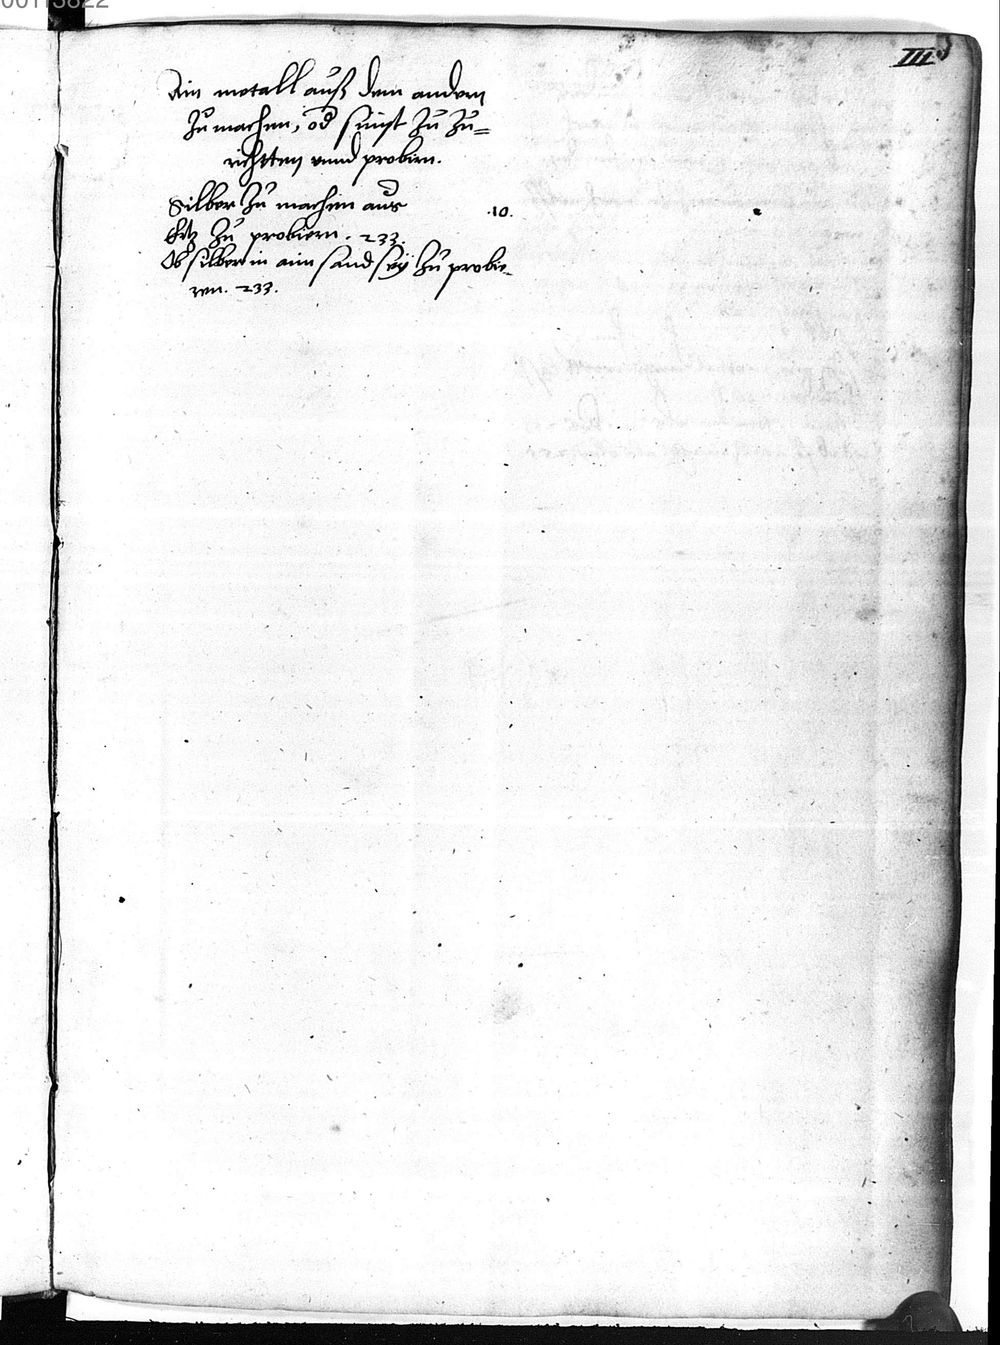 III
Ain metall auß dem andern
zu machen, od sunst zu zu=
richtten vnnd probirn.
Silber zu machen aus .10.
Ertz zu probiern. 233.
Ob silber in aim sand seÿ zu probie-
ren. 233.